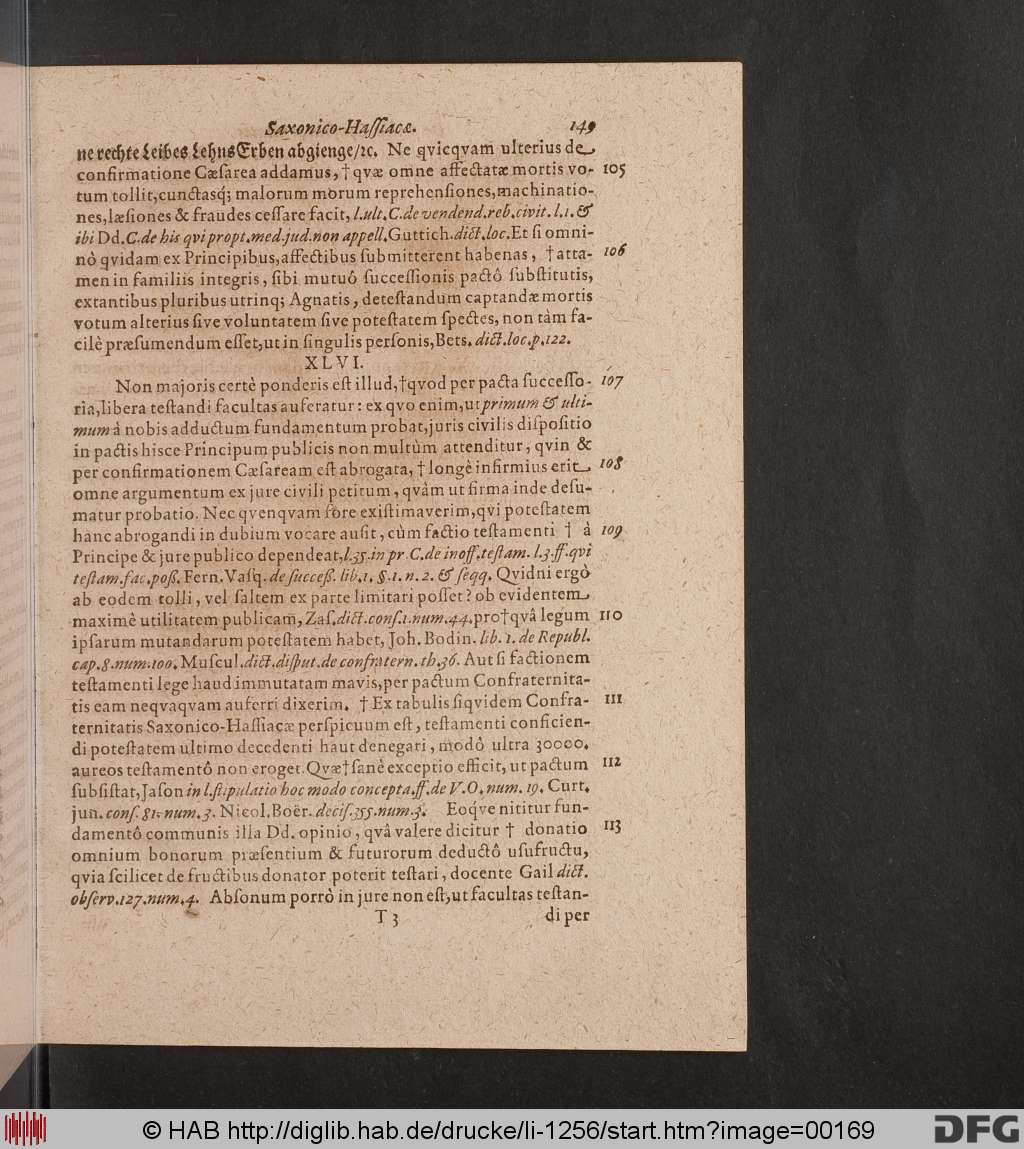 Saxonico-Haſſiacæ. 149
ne rechte Leibes LehnsErben abgienge/ꝛc. Ne qvicqvam ulterius de
confirmatione Cæſarea addamus, † qvæ omne affectatæ mortis vo- 105
tum tollit, cunctasq́; malorum morum reprehenſiones, machinatio-
nes, læſiones & fraudes ceſſare facit, l. ult. C. de vendend. reb. civit. l. 1. &
ibi Dd. C. de his qvi propt. med. jud. non appell. Guttich. dict. loc. Et ſi omni-
nò qvidam ex Principibus, affectibus ſubmitterent habenas, † atta- 106
men in familiis integris, ſibi mutuô ſucceſſionis pactô ſubſtitutis,
extantibus pluribus utrinq; Agnatis, deteſtandum captandæ mortis
votum alterius ſive voluntatem ſive poteſtatem ſpectes, non tàm fa-
cilè præſumendum eſſet, ut in ſingulis perſonis, Bets. dict. loc. p. 122.
XLVI.
Non majoris certè ponderis eſt illud, † qvod per pacta ſucceſſo- 107
ria, libera teſtandi facultas auferatur: ex qvo enim, ut primum & ulti-
mum à nobis adductum fundamentum probat, juris civilis diſpoſitio
in pactis hisce Principum publicis non multùm attenditur, qvin &
per confirmationem Cæſaream eſt abrogata, † longè infirmius erit 108
omne argumentum ex jure civili petitum, qvàm ut firma inde deſu-
matur probatio. Nec qvenqvam fore exiſtimaverim, qvi poteſtatem
hanc abrogandi in dubium vocare auſit, cùm factio teſtamenti † à 109
Principe & jure publico dependeat, l. 35. in pr. C. de inoff. teſtam. l. 3. ff. qvi
teſtam. fac. poß. Fern. Vaſq. de ſucceß. lib. 1. §. 1. n. 2. & ſeqq. Qvidni ergò
ab eodem tolli, vel ſaltem ex parte limitari poſſet? ob evidentem
maximè utilitatem publicam, Zaſ. dict. conſ. 1. num. 44. pro † qvâ legum 110
ipſarum mutandarum poteſtatem habet, Joh. Bodin. lib. 1. de Republ.
cap. 8. num. 100. Muſcul. dict. diſput. de confratern. th. 36. Aut ſi factionem
teſtamenti lege haud immutatam mavis, per pactum Confraternita-
tis eam neqvaqvam auferri dixerim. † Ex tabulis ſiqvidem Confra- 111
ternitatis Saxonico-Haſſiacæ perſpicuum eſt, teſtamenti conficien-
di poteſtatem ultimo decedenti haut denegari, modô ultra 30000.
aureos teſtamentô non eroget. Qvæ † ſanè exceptio efficit, ut pactum 112
ſubſiſtat, Jaſon in l. ſtipulatio hoc modo concepta. ff. de V. O. num. 19. Curt.
jun. conſ. 81. num. 3. Nicol. Boër. deciſ. 355. num. 3. Eoqve nititur fun-
damentô communis illa Dd. opinio, qvâ valere dicitur † donatio 113
omnium bonorum præſentium & futurorum deductô uſufructu,
qvia ſcilicet de fructibus donator poterit teſtari, docente Gail dict.
obſerv. 127. num. 4. Abſonum porrò in jure non eſt, ut facultas teſtan-
T 3 di per
© HAB http://diglib.hab.de/drucke/li-1256/start.htm?image=00169
DFG